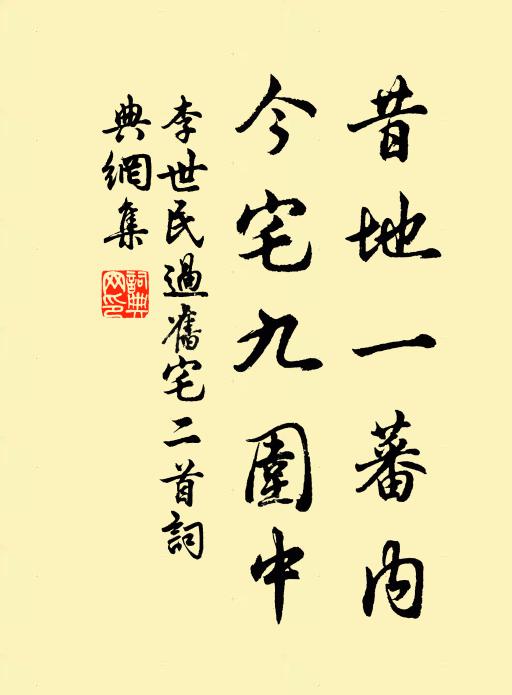 昔地一蕃内
今宅九圍中
李世民過舊宅二首詞
典網集
詞典網印